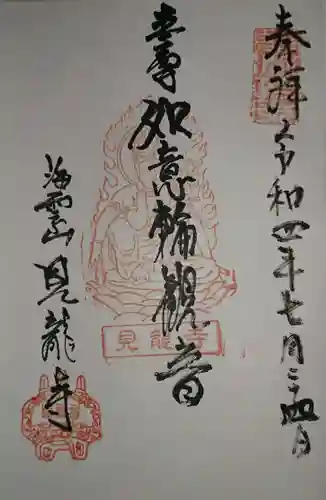 奉拝 令和四年七月二十四日
本尊 如意輪觀音
海雲山 見龍寺
見龍寺